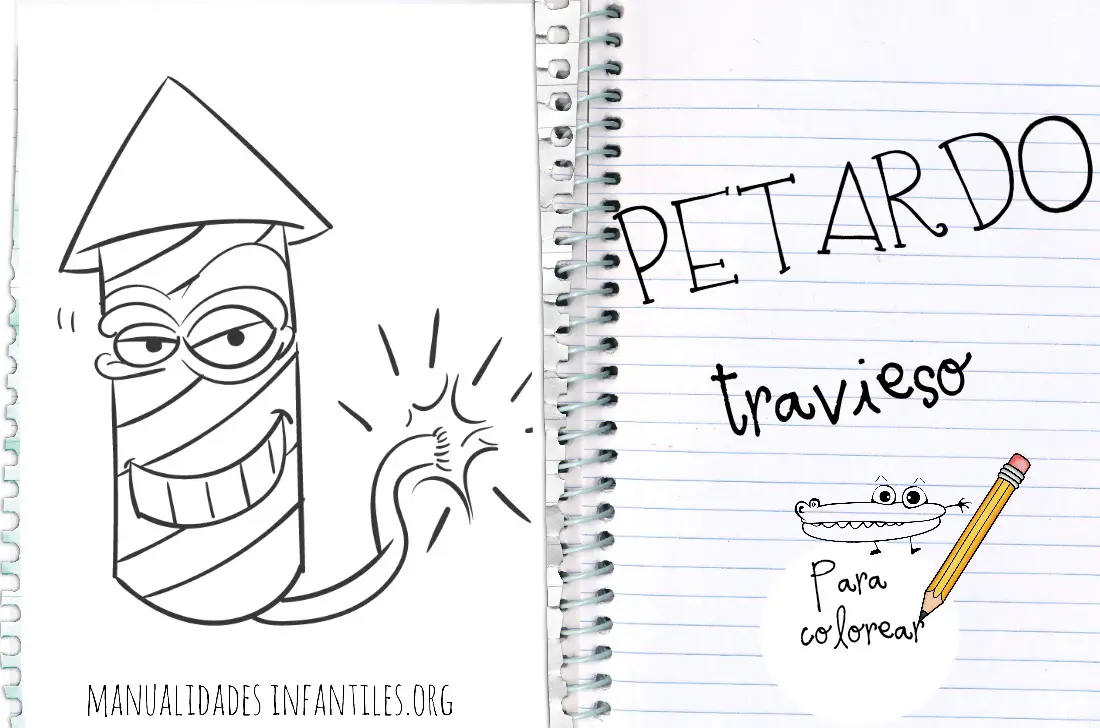 MANUALIDADES INFANTILES.ORG
PETARDO
travieso
Para
colorear